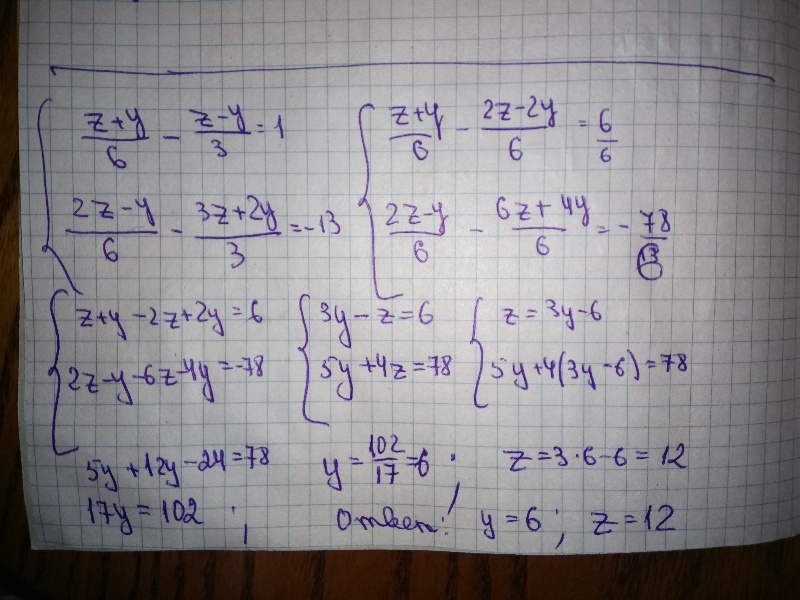 (z+y)/6 - (z-y)/3 = 1
(2z-y)/6 - (3z+2y)/3 = -13
(z+y)/6 - (2z-2y)/6 = 6/6
(2z-y)/6 - (6z+4y)/6 = - 78/
z+y-2z+2y=6
2z-y-6z-4y=-78
3y-z=6
5y+4z=78
z=3y-6
5y+4(3y-6)=78
5y+12y-24=78
17y=102 ;
y=102/17=6 ;
z=3·6-6=12
Ответ: y=6; z=12